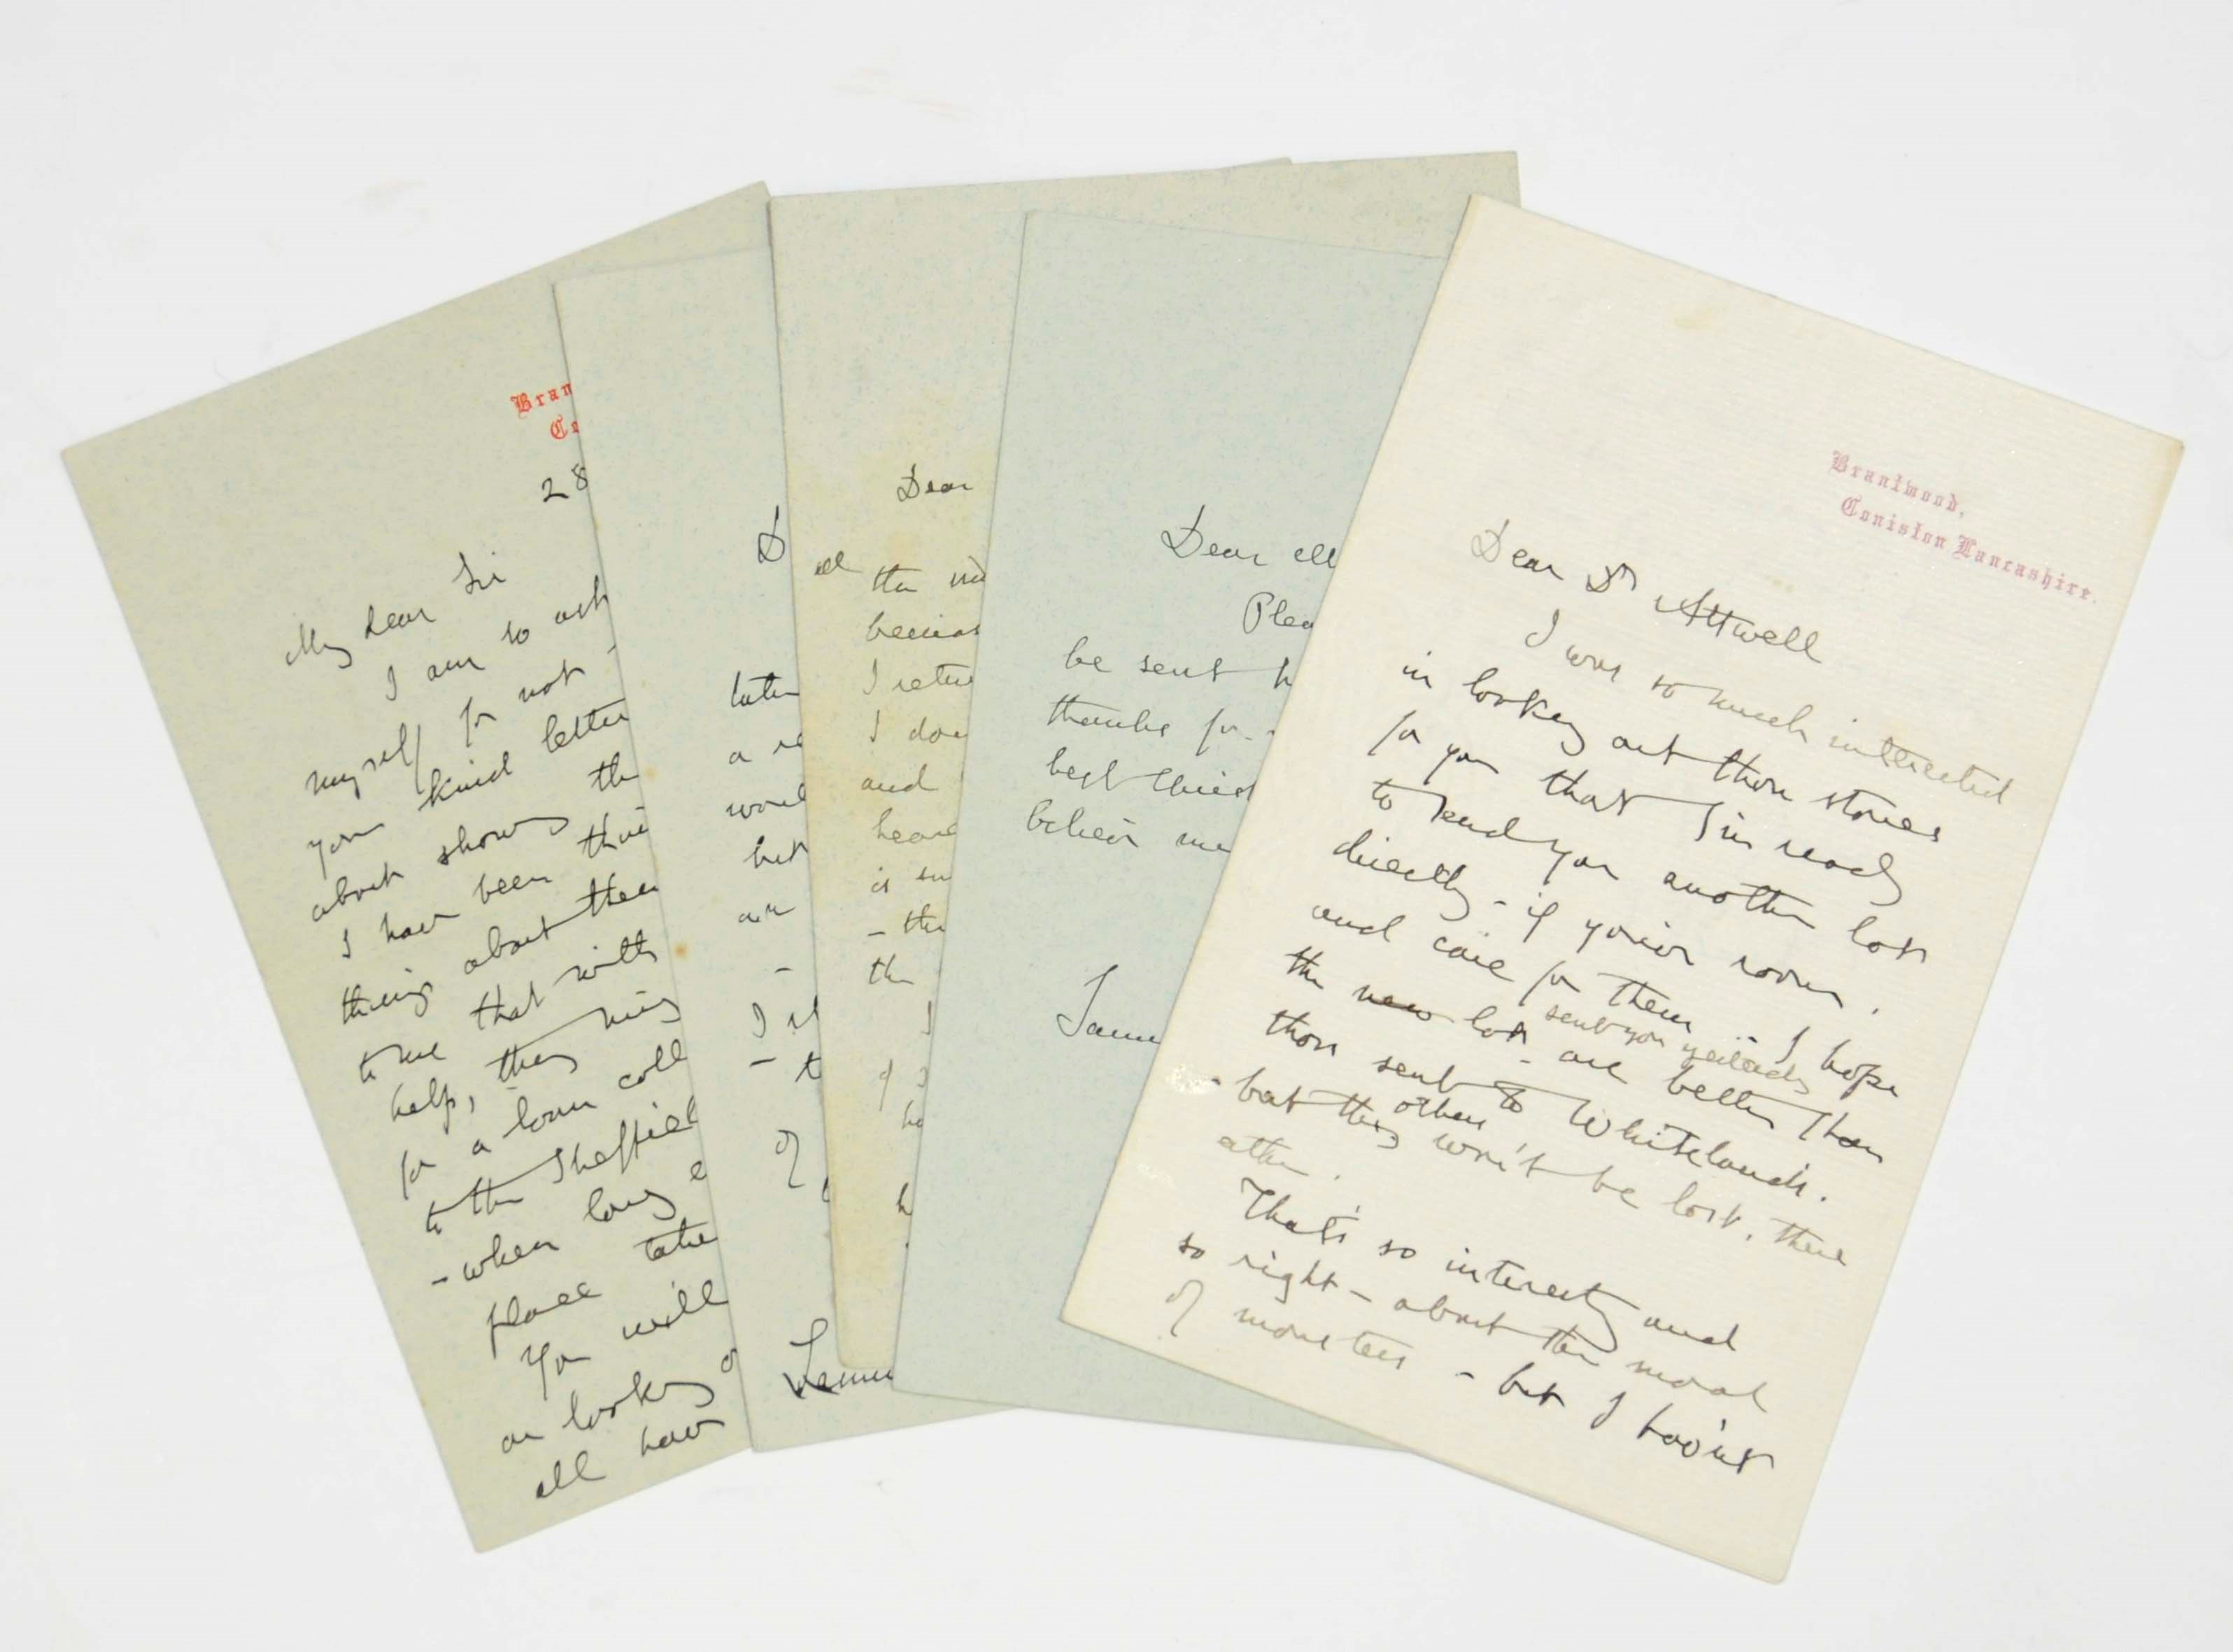 Bran
Co
28
My dear Sir
I am so ash
myself for not
your kind letter
about showing the
I have been thin
things about them
to me that with
help, they mig
for a loan coll
to the Sheffield
- when long e
place take
You will
on looking o
all have
D
late
a re
woul
but
are
-
I sh
- t
of
Dear
the
becaus
I retur
I don
and
hear
is su
- the
the
I
of s
ho
h
Dear
Plea
be sent h
thanks for
best
believe me
Brantwood,
Coniston Lancashire.
Dear Dr Attwell
I was so much interested
in looking out those stones
for you that I'm ready
to send you another lot
directly - if you've room,
and care for them - I hope
sent you yesterday
the new lot - are better than
those sent to Whitelands.
others
- but they won't be lost, there
either.
That's so interesting and
so right - about the moral
of monsters - but I hav'nt